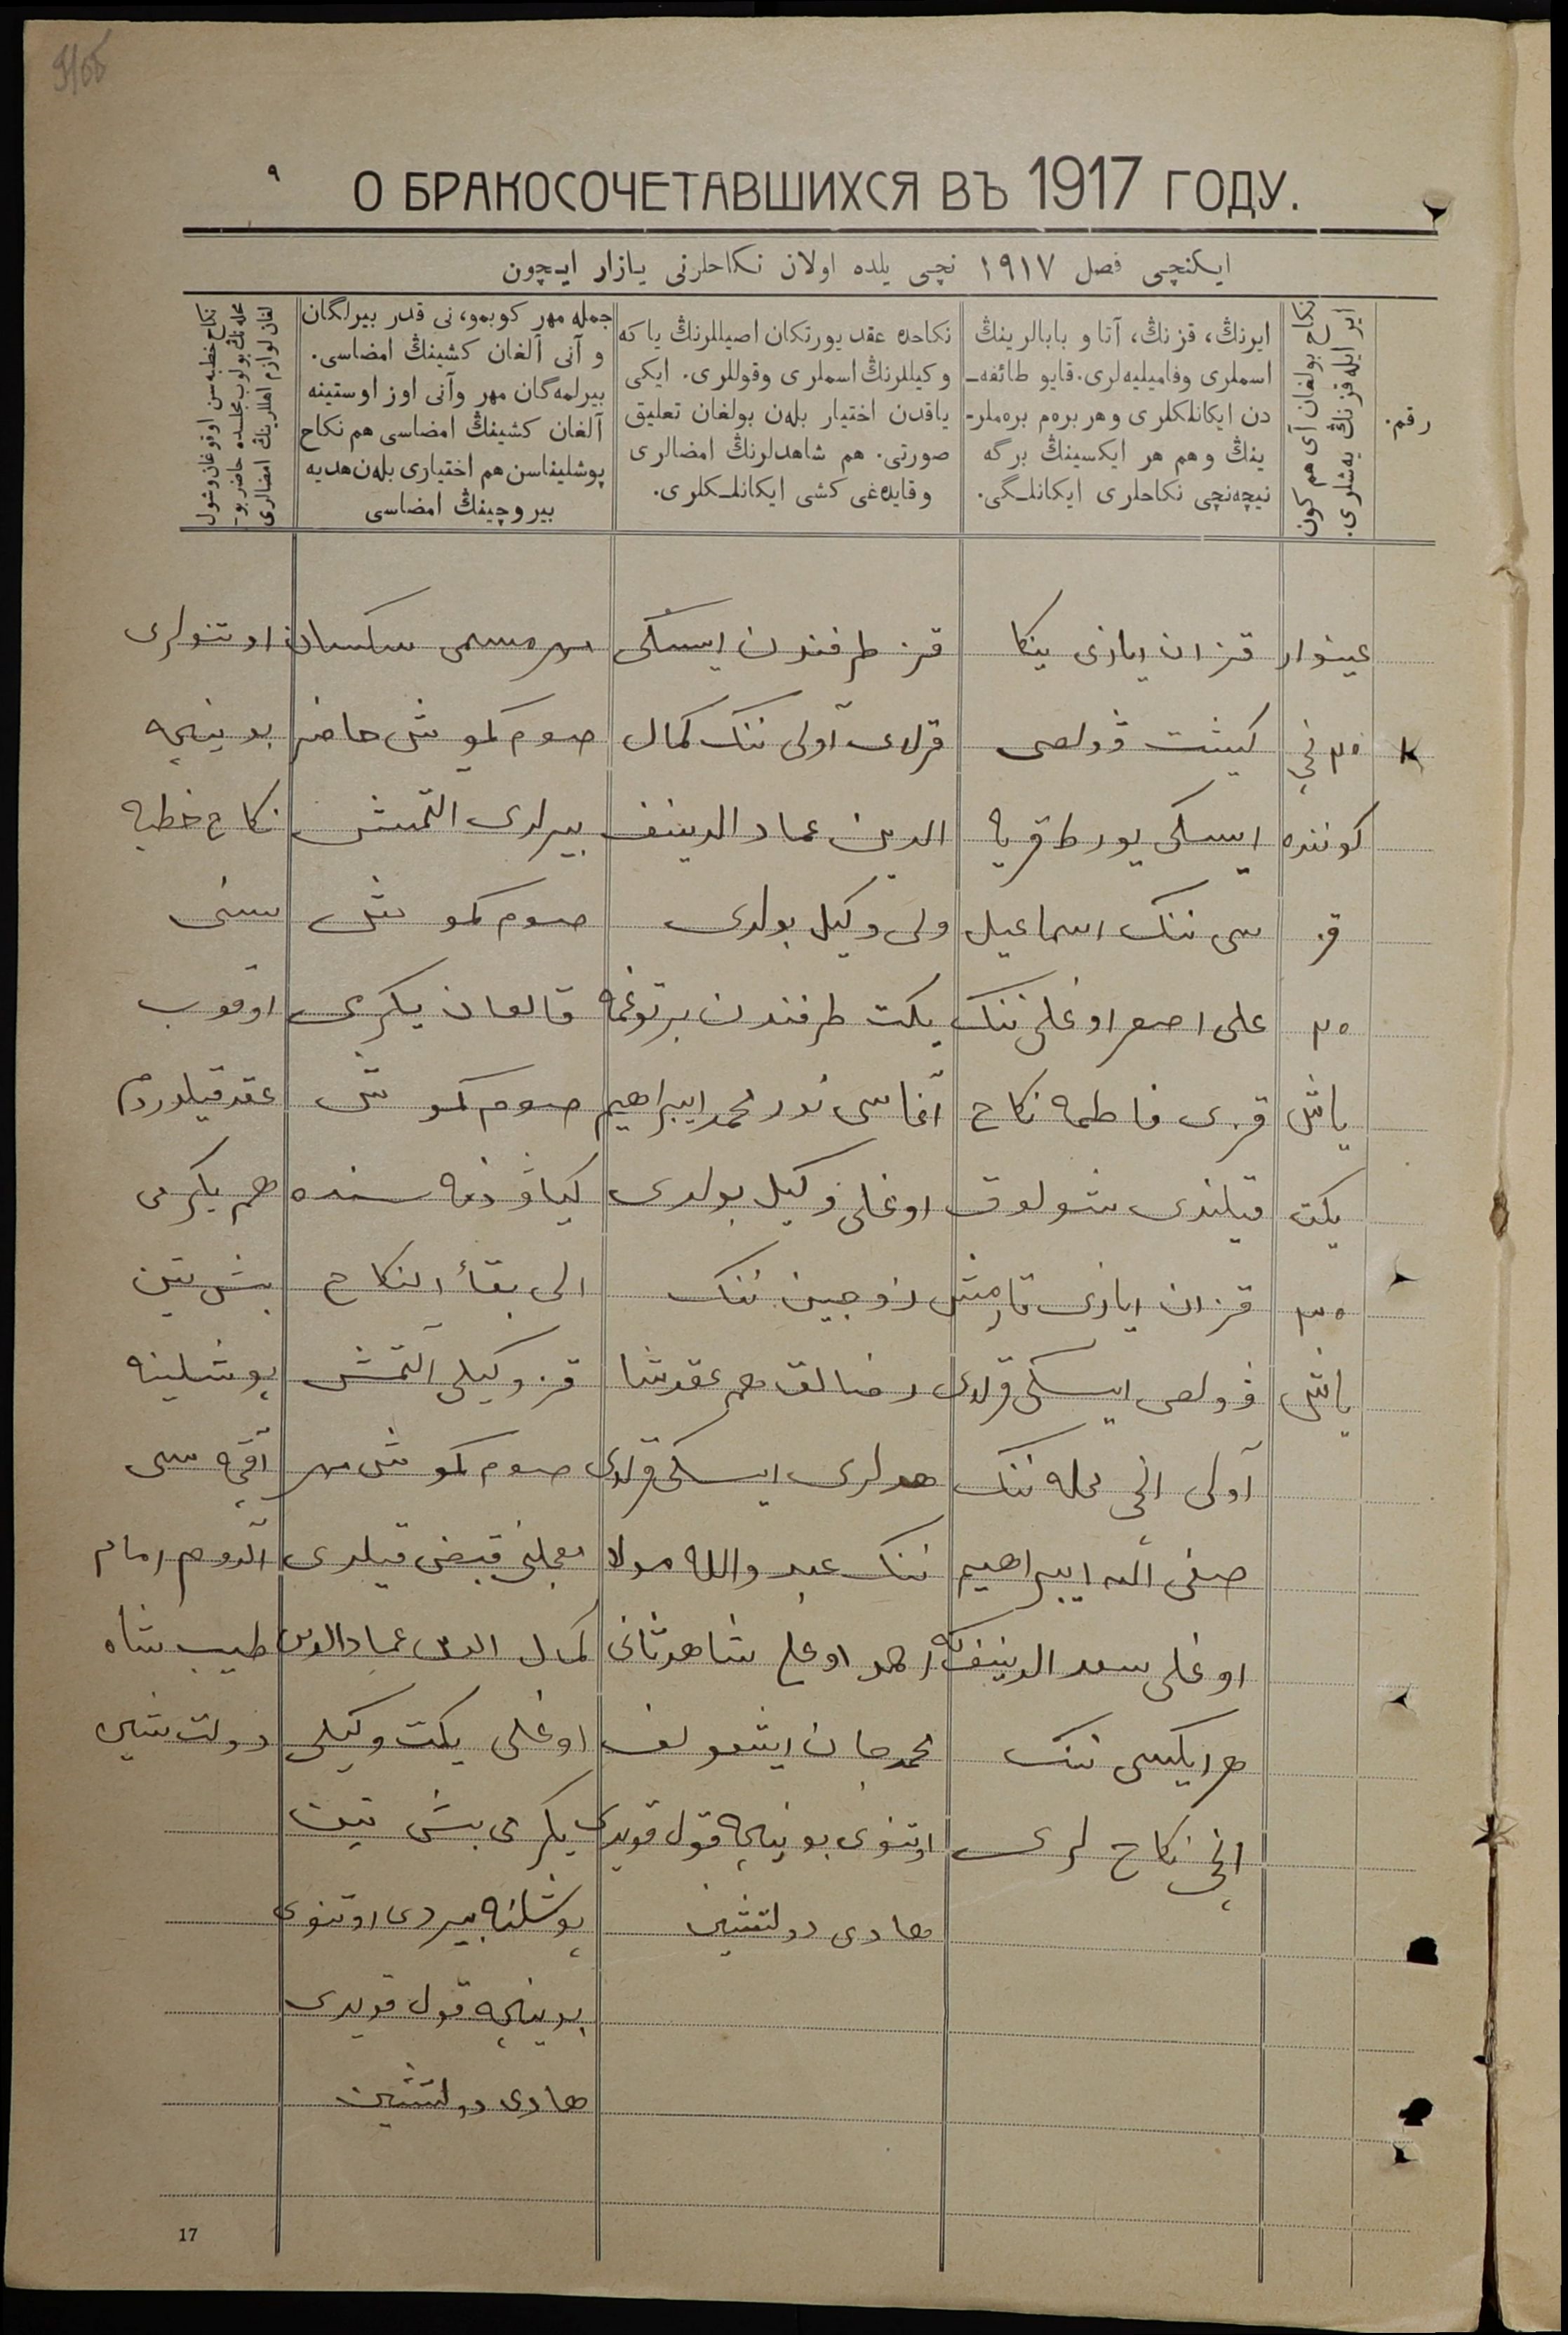 91об
۹
О БРАКОСОЧЕТАВШИХСЯ ВЪ 1917 ГОДУ.
ایکنچی فصل ۱۹۱۷ نچی یلده اولان نکاحلرنی یازار ایچون
رقم.
نکاح بولغان آی هم کون
ایر ایله قزنڭ یه‌شلری.
ایرنڭ، قزنڭ، آتا و بابالرینڭ
اسملری وفامیلیه‌لری. قایو طائفه‌ـ
دن ایکانلکلری وهر بره‌م بره‌ملرـ
ینڭ وهم هر ایکسینڭ برگه
نیچه‌نچی نکاحلری ایکانلـگی.
نکاحده عقد یورتکان اصیللرنڭ یاکه
وکیللرنڭ اسملری وقوللری. ایکی
یاقدن اختیار بله‌ن بولغان تعلیق
صورتی. هم شاهدلرنڭ امضالری
وقایده‌غی کشی ایکانلـکلری.
جمله مهر کوبمو، نی قدر بیرلگان
و آنی آلغان کشینڭ امضاسی.
بیرلمه‌گان مهر وآنی اوز اوستینه
آلغان کشینڭ امضاسی هم نکاح
پوشلیناسن هم اختیاری بله‌ن هدیه
بیروچینڭ امضاسی
نکاح خطبه‌سن اوقوغان وشول
محله‌نڭ بولوب مجلسده حاضر بوـ
لغان لوازم اهللرینڭ امضالری
۱
عینوار
۲۵ نچی
کوننده
قز
۲۵
یاش
یکت
۳۵
یاش
قزان ایازی ینکا
کیشت ڤولصی
ایسکی یورط قریه
سی ننک اسماعیل
علی اصغر اوغلی ننک
قزی فاطمه نکاح
قیلندی شولوق
قزان ایازی تارمش
ڤولصی ایسکی قزلی
آولی انچی محله ننک
صفی الله ایبراهیم
اوغلی سعد الدینفکه
هر ایکسی ننک
انچی نکاح لری
قز طرفندن ایسکی
قزلی آولی ننک کمال
الدین عماد الدینف
ولی وکیل بولدی
یکت طرفندن برتوغمه
آغاسی نور محمد ایبراهیم
اوغلی وکیل بولدی
زوجین ننک
رضالق هم عقد شا
هدلری ایسکی قزلی
ننک عبد والله مولا
احمد اوغلی شاهد ثانی
محمد جان ایشمولف
اوتنوی بوینچه قول قویدی
هادی دولتشین
مهر مسمی سکسان
صوم کموش حاضر
بیرلدی التمش
صوم کموش
قالغان یکرمی
صوم کموش
کیاو ذمه سنده
الی بقاٴ النکاح
قز وکیلی آلتمش
صوم کموش مهر
معجلنی قبض قیلدی
کمال الدین عماد الدین
اوغلی یکت وکیلی
یکرمی بش تین
پوشلینه بیردی اوتنوی
بوینچه قول قویدی
هادی دولتشین
اوتنولری
بوینچه
نکاح خطبه
سنی
اوقوب
عقد قیلدوردم
هم یکرمی
بش تین
پوشلینه
آقچه سی
آلدوم امام
طیب شاه
دولت شین
17